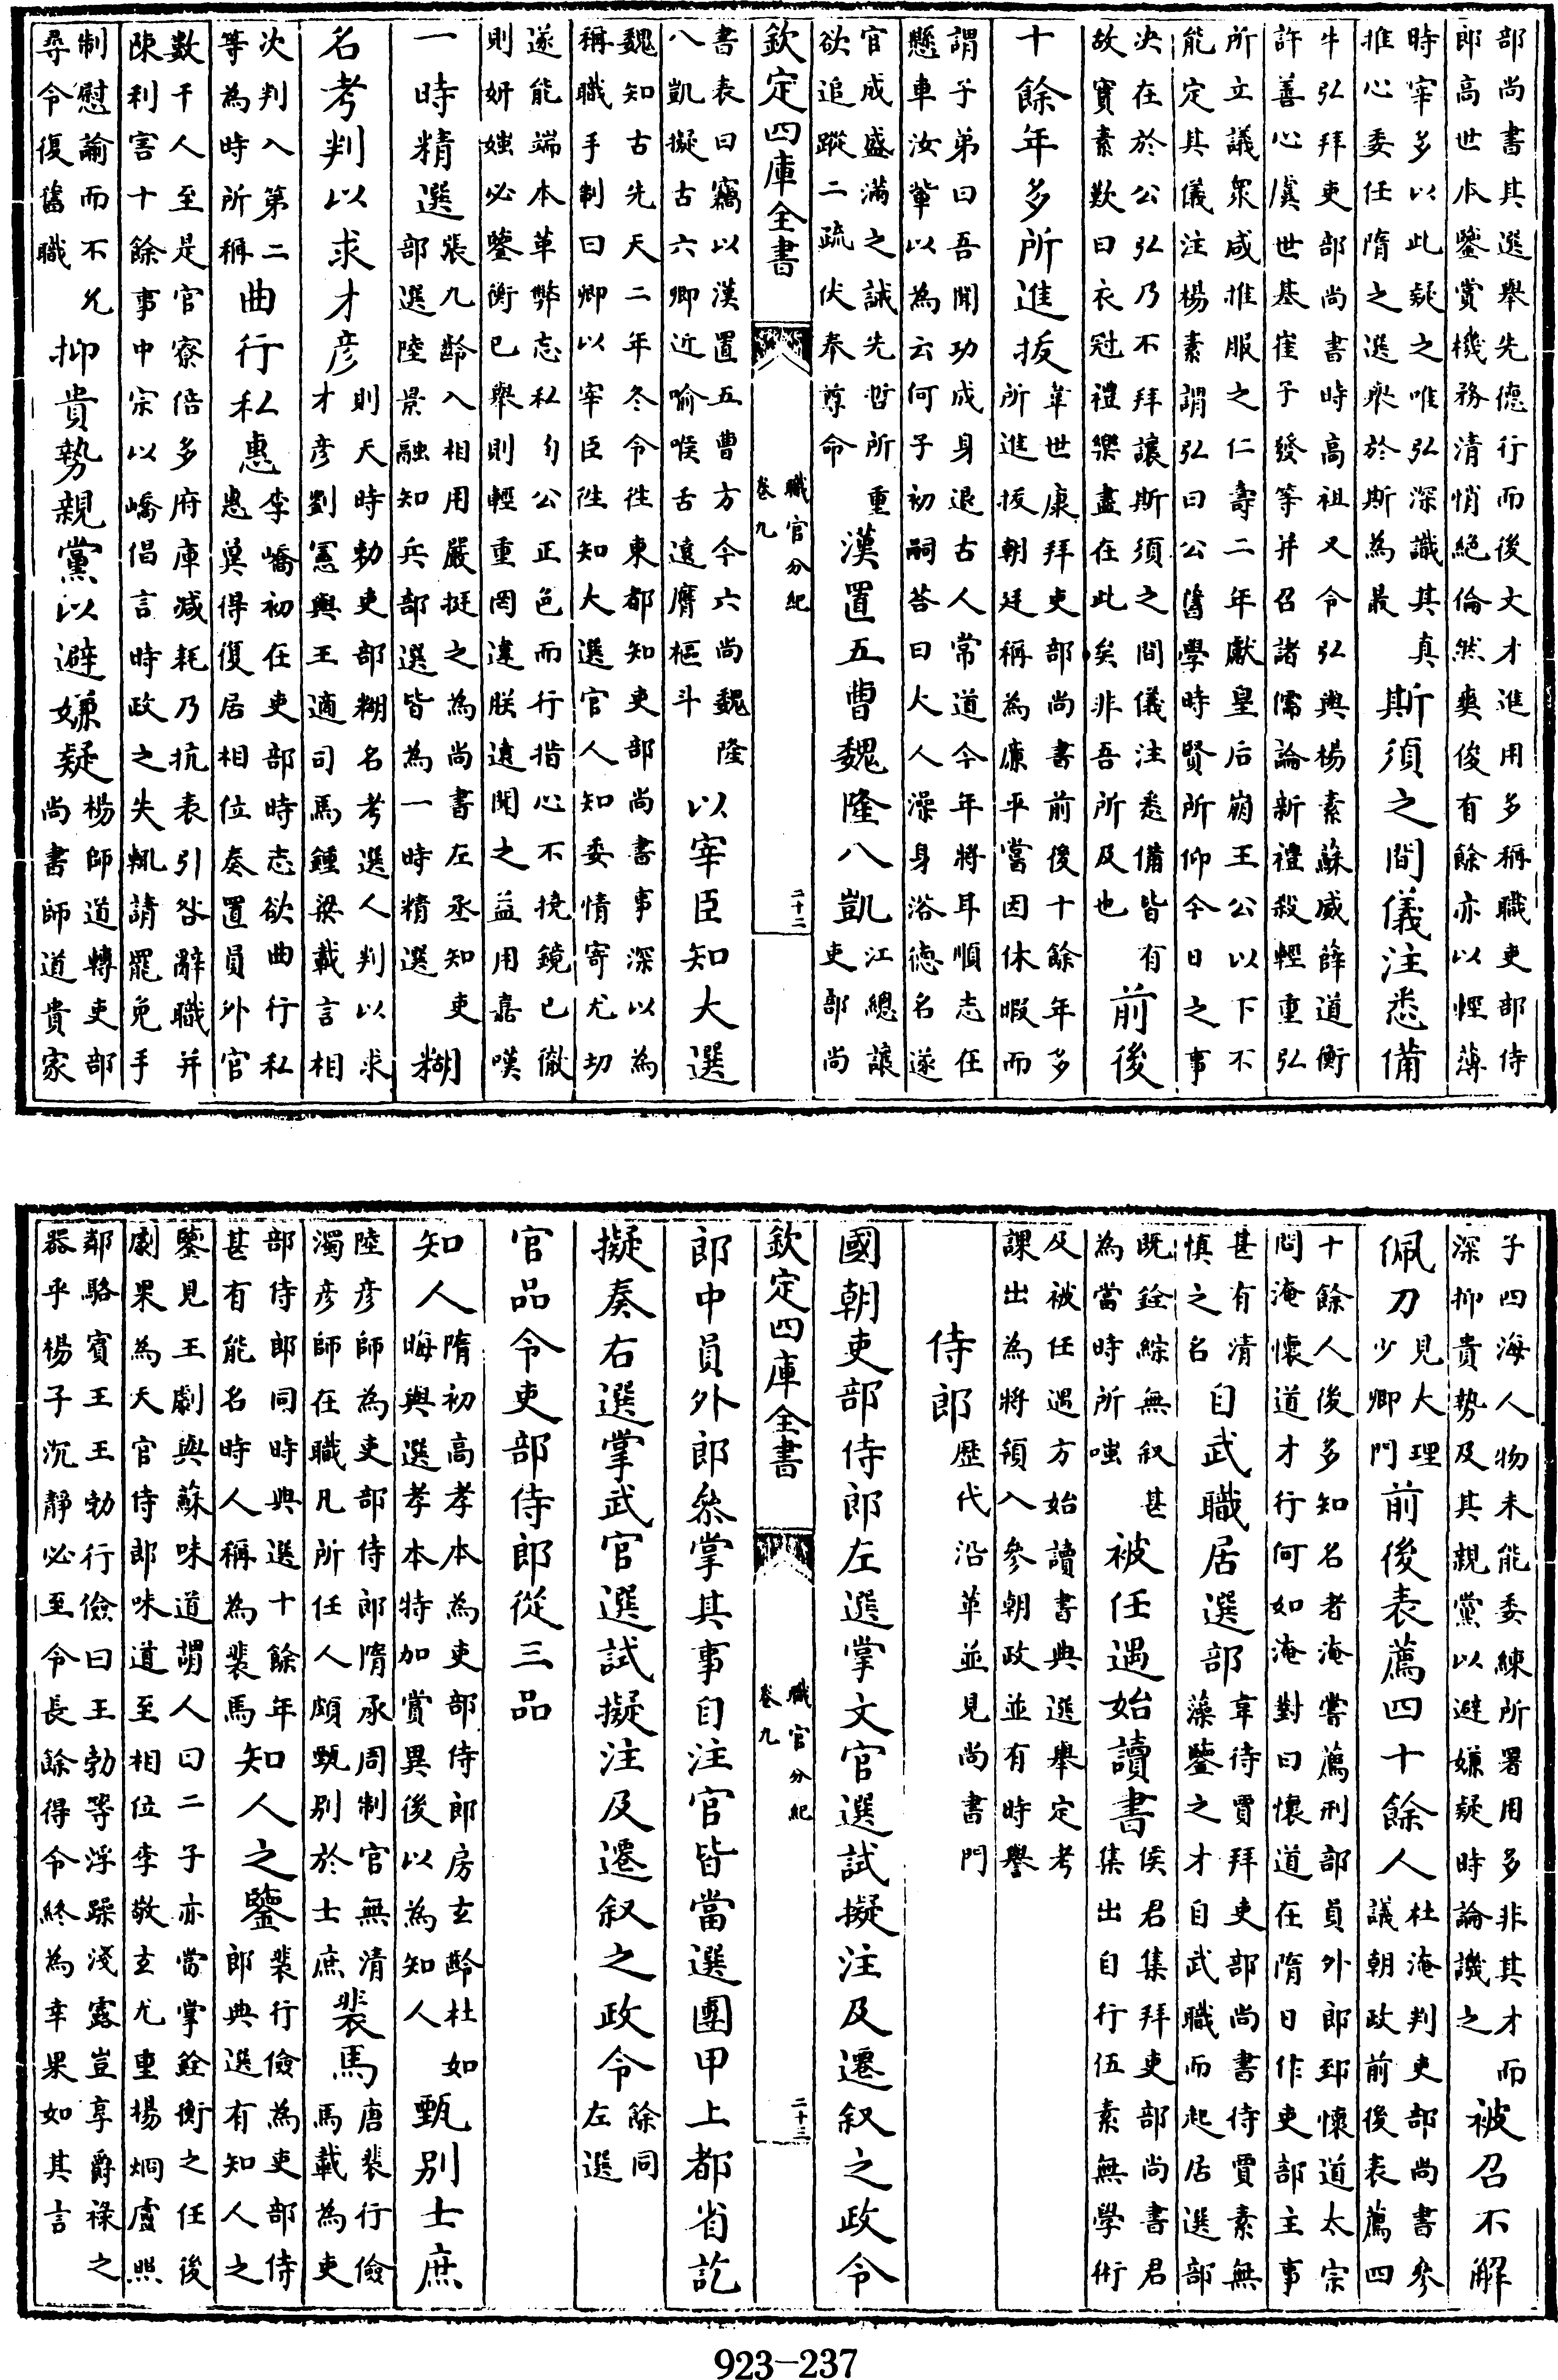 部尚書其選舉先德行而後文才進用多稱職吏部侍
郎高世本鑒賞機務清悄絶倫然爽俊有餘亦以輕薄
時宰多以此疑之唯弘深識其真
推心委任隋之選衆於斯為最
斯須之間儀注悉備
牛弘拜吏部尚書時高祖又令弘與楊素蘇威薛道衡
許善心虞世基崔子發等并召諸儒論新禮殺輕重弘
所立議衆咸推服之仁壽二年獻皇后崩王公以下不
能定其儀注楊素謂弘曰公舊學時賢所仰今日之事
决在於公弘乃不拜讓斯須之間儀注悉備皆有
故實素歎曰衣冠禮樂盡在此矣非吾所及也
前後
十餘年多所進拔
韋世康拜吏部尚書前後十餘年多
所進拔朝廷稱為廉平當因休暇而
謂子弟曰吾聞功成身退古人常道今年將耳順志在
懸車汝輩以為云何子初嗣荅曰大人澡身浴德名遂
官成盛滿之誡先哲所重
欲追蹤二疏伏奉尊命
漢置五曹魏隆八凱
江總讓
吏部尚
欽定四庫全書
職官分紀
卷九
二十二
書表曰竊以漢置五曹方今六尚魏隆
八凱擬古六卿近喻喉舌遠膺樞斗
以宰臣知大選
魏知古先天二年冬令徃東都知吏部尚書事深以為
稱職手制曰卿以宰臣徃知大選官人知委情寄尤切
遂能端本革弊志私徇公正色而行指心不撓鏡已徹
則妍媸必鑒衡已舉則輕重罔違朕遠聞之益用嘉嘆
一時精選
張九齡入相用嚴挺之為尚書左丞知吏
部選陸景融知兵部選皆為一時精選
糊
名考判以求才彦
則天時勅吏部糊名考選人判以求
才彦劉憲與王適司馬鍾梁載言相
次判入第二
等為時所稱
曲行私惠
李嶠初任吏部時志欲曲行私
惠冀得復居相位奏置員外官
數千人至是官寮倍多府庫减耗乃抗表引咎辭職并
陳利害十餘事中宗以嶠倡言時政之失輒請罷免手
制慰諭而不允
尋令復舊職
抑貴勢親黨以避嫌疑
楊師道轉吏部
尚書師道貴家
子四海人物未能委練所署用多非其才而
深抑貴勢及其親黨以避嫌疑時論譏之
被召不解
佩刀
見大理
少卿門
前後表薦四十餘人
杜淹判吏部尚書參
議朝政前後表薦四
十餘人後多知名者淹嘗薦刑部員外郎郅懷道太宗
問淹懷道才行何如淹對曰懷道在隋日作吏部主事
甚有清
慎之名
自武職居選部
韋待賈拜吏部尚書待賈素無
藻鑒之才自武職而起居選部
既銓綜無叙甚
為當時所嗤
被任遇始讀書
侯君集拜吏部尚書君
集出自行伍素無學術
及被任遇方始讀書典選舉定考
課出為將領入參朝政並有時譽
侍郎
歴代沿革並見尚書門
國朝吏部侍郎左選掌文官選試擬注及遷叙之政令
欽定四庫全書
職官分紀
卷九
二十三
郎中員外郎叅掌其事自注官皆當選團甲上都省訖
擬奏右選掌武官選試擬注及遷叙之政令
餘同
左選
官品令吏部侍郎從三品
知人
隋初高孝本為吏部侍郎房玄齡杜如
晦與選孝本特加賞異後以為知人
甄别士庶
陸彦師為吏部侍郎隋承周制官無清
濁彦師在職凡所任人頗甄别於士庶
裴馬
唐裴行儉
馬載為吏
部侍郎同時典選十餘年
甚有能名時人稱為裴馬
知人之鑒
裴行儉為吏部侍
郎典選有知人之
鑒見王勮與蘇味道謂人曰二子亦當掌銓衡之任後
勮果為天官侍郎味道至相位李敬玄尤重楊烱盧照
鄰駱賓王王勃行儉曰王勃等浮躁淺露豈享爵祿之
器乎楊子沉靜必至令長餘得令終為幸果如其言
923-237